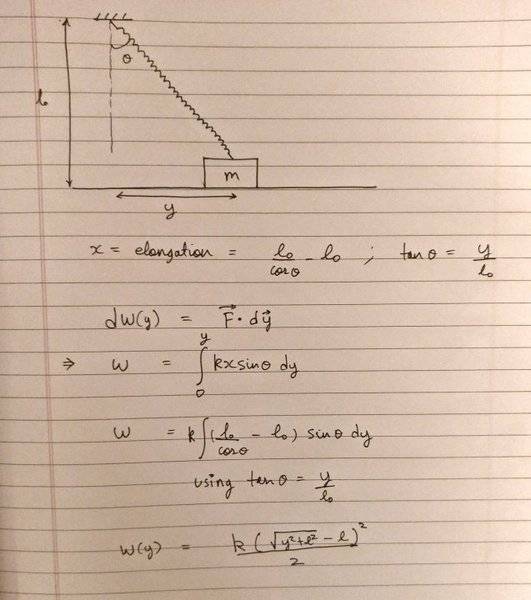 θ
l₀
m
y
x = elongation = l₀/cosθ - l₀ ; tanθ = y/l₀
dW(y) = F⃗ · dy⃗
⇒ W = ∫₀^y kx sinθ dy
W = k∫(l₀/cosθ - l₀) sinθ dy
using tanθ = y/l₀
W(y) = k(√(y²+l²) - l)²/2